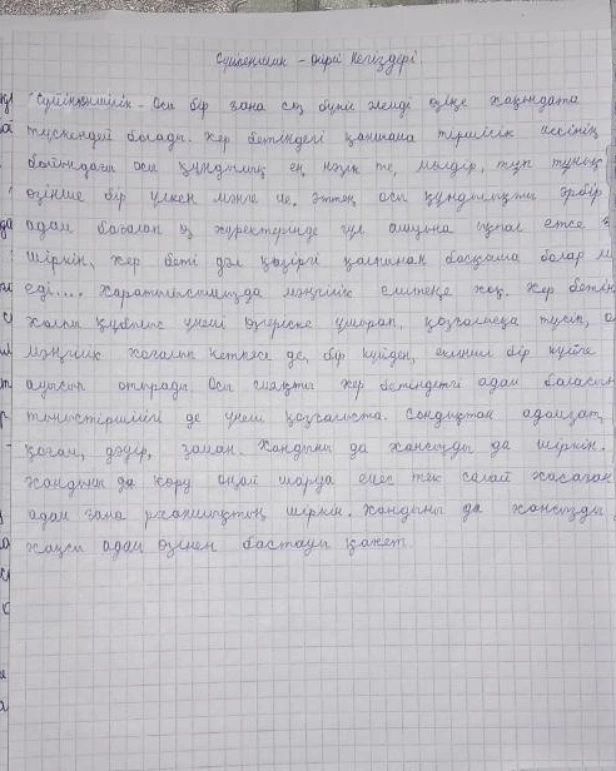 Сүйіспеншілік – өмір негіздері.
Сүйіспеншілік – Осы бір ғана сөз бүкіл әлемді өзіңе жақындата
түскендей болады. Жер бетіндегі қаншама тіршілік иесінің
бойындағы осы құндылық ең нәзік те, мөлдір, тұп тұнық
өзінше бір үлкен мәнге ие. Әттең осы құндылықты әрбір
адам бағалап өз жүректерінде гүл ашуына ықпал етсе
шіркін, жер беті дәл қазіргі қалпынан басқаша болар
еді.... Жаратылысымызда мәңгілік ештеңе жоқ. Жер бетін
жалпы құбылыс үнемі өзгеріске ұшырап, қозғалысқа түсіп,
мәңгілік жоғалып кетпесе де, бір күйден, екінші бір күйге
ауысып отырады. Осы сияқты жер бетіндегі адам баласын
тіршілігі де үнемі қозғалыста. Сондықтан адамзат,
қоғам, дәуір, заман. Жандыны да жансызды да шіркін.
жандыны да көру оңай шаруа емес тек солай жасаған
адам ғана шіркін. Жандыны да жансызды
жақсы адам өзінен бастауы қажет.